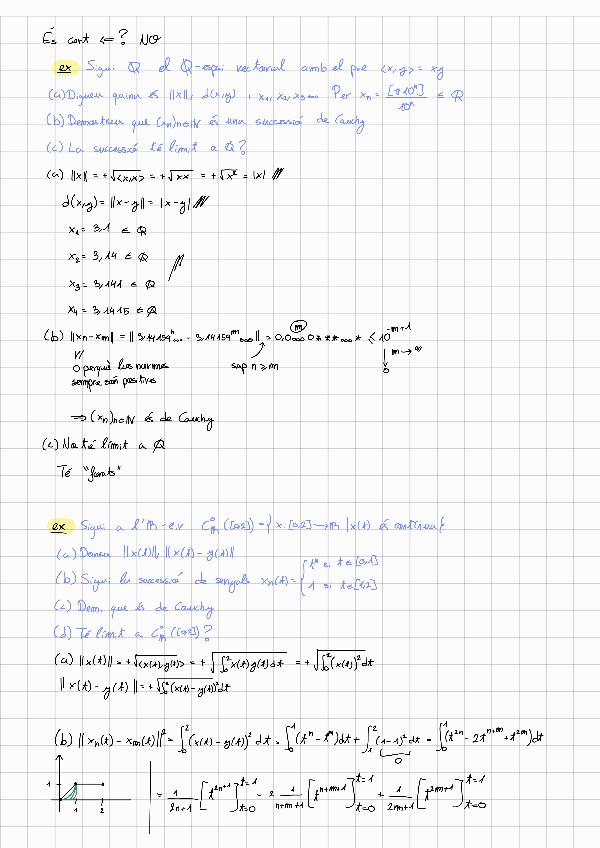 És cert ⇐? NO
ex Sigui ℚ el ℚ-espai vectorial amb el pae <x,y> = xy
(a) Digueu quina és ||x||, d(x,y), x₁, x₂, x₃... Per xₙ = [π10ⁿ]/10ⁿ ∈ ℚ
(b) Demostreu que (xₙ)n∈ℕ és una successió de Cauchy
(c) La successió té límit a ℚ?
(a) ||x|| = +√<x,x> = +√xx = +√x² = |x|
d(x,y) = ||x-y|| = |x-y|
x₁ = 3,1 ∈ ℚ
x₂ = 3,14 ∈ ℚ
x₃ = 3,141 ∈ ℚ
x₄ = 3,1415 ∈ ℚ
(b) ||xn-xm|| = ||3,14159ⁿ... - 3,14159ᵐ...|| = 0,0...0***...* ≤ 10^(-m+1)
m
m → ∞
0
V/
0 perquè les normes
sempre són positives
sup n ≥ m
⇒ (xₙ)n∈ℕ és de Cauchy
(c) No té límit a ℚ
Té "forats"
ex Sigui a l'ℝ-e.v C⁰ℝ([0,2]) = {x:[0,2]→ℝ | x(t) és contínua}
(a) Doneu ||x(t)||, ||x(t)-y(t)||
(b) Sigui la successió de senyals xₙ(t) = { tⁿ si t∈[0,1]
1 si t∈[1,2]
(c) Dem. que és de Cauchy
(d) Té límit a C⁰ℝ([0,2])?
(a) ||x(t)|| = +√<x(t),y(t)> = +√∫₀² x(t)y(t)dt = +√∫₀² (x(t))² dt
||x(t)-y(t)|| = +√∫₀² (x(t)-y(t))² dt
(b) ||xₙ(t)-xₘ(t)||² = ∫₀² (x(t)-y(t))² dt = ∫₀¹ (tⁿ-tᵐ)dt + ∫₁² (1-1)² dt = ∫₀¹ (t²ⁿ - 2tⁿ⁺ᵐ + t²ᵐ)dt
0
1
1 2
= 1/(2n+1) [t²ⁿ⁺¹]t=0 t=1 - 2 1/(n+m+1) [tⁿ⁺ᵐ⁺¹]t=0 t=1 + 1/(2m+1) [t²ᵐ⁺¹]t=0 t=1